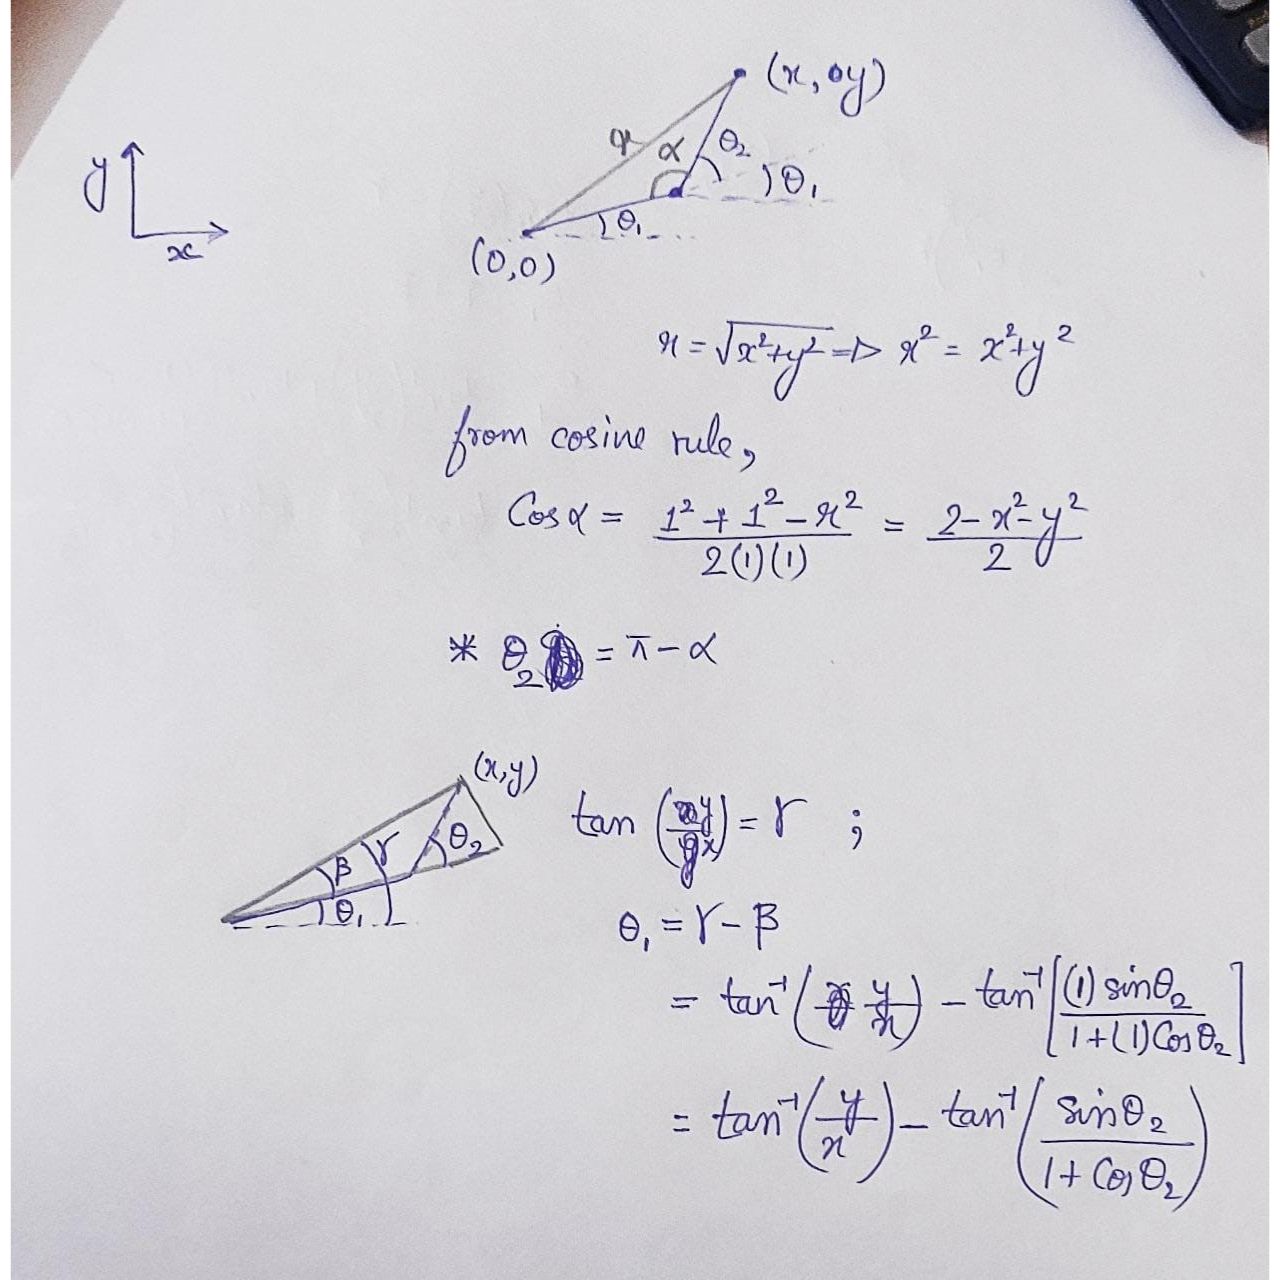 (x, y)
r α θ₂
) θ₁
y
θ₁
x
(0,0)
r = √x²+y² ⇒ r² = x²+y²
from cosine rule,
Cos α = (1² + 1² – r²)/(2(1)(1)) = (2 – x² – y²)/2
* θ₂ = π – α
(x,y)
tan (y/x) = γ ;
β γ θ₂
θ₁
θ₁ = γ – β
= tan⁻¹ (y/x) – tan⁻¹ [(1) sinθ₂/(1+(1)Cosθ₂)]
= tan⁻¹ (y/x) – tan⁻¹ (sinθ₂/(1+Cosθ₂))